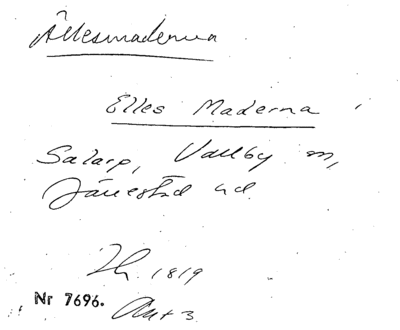 Ällesmaderna
Elles Maderna
Salarp, Vallby sn,
Järrestad hd
1819
Nr 7696.
Akt 3